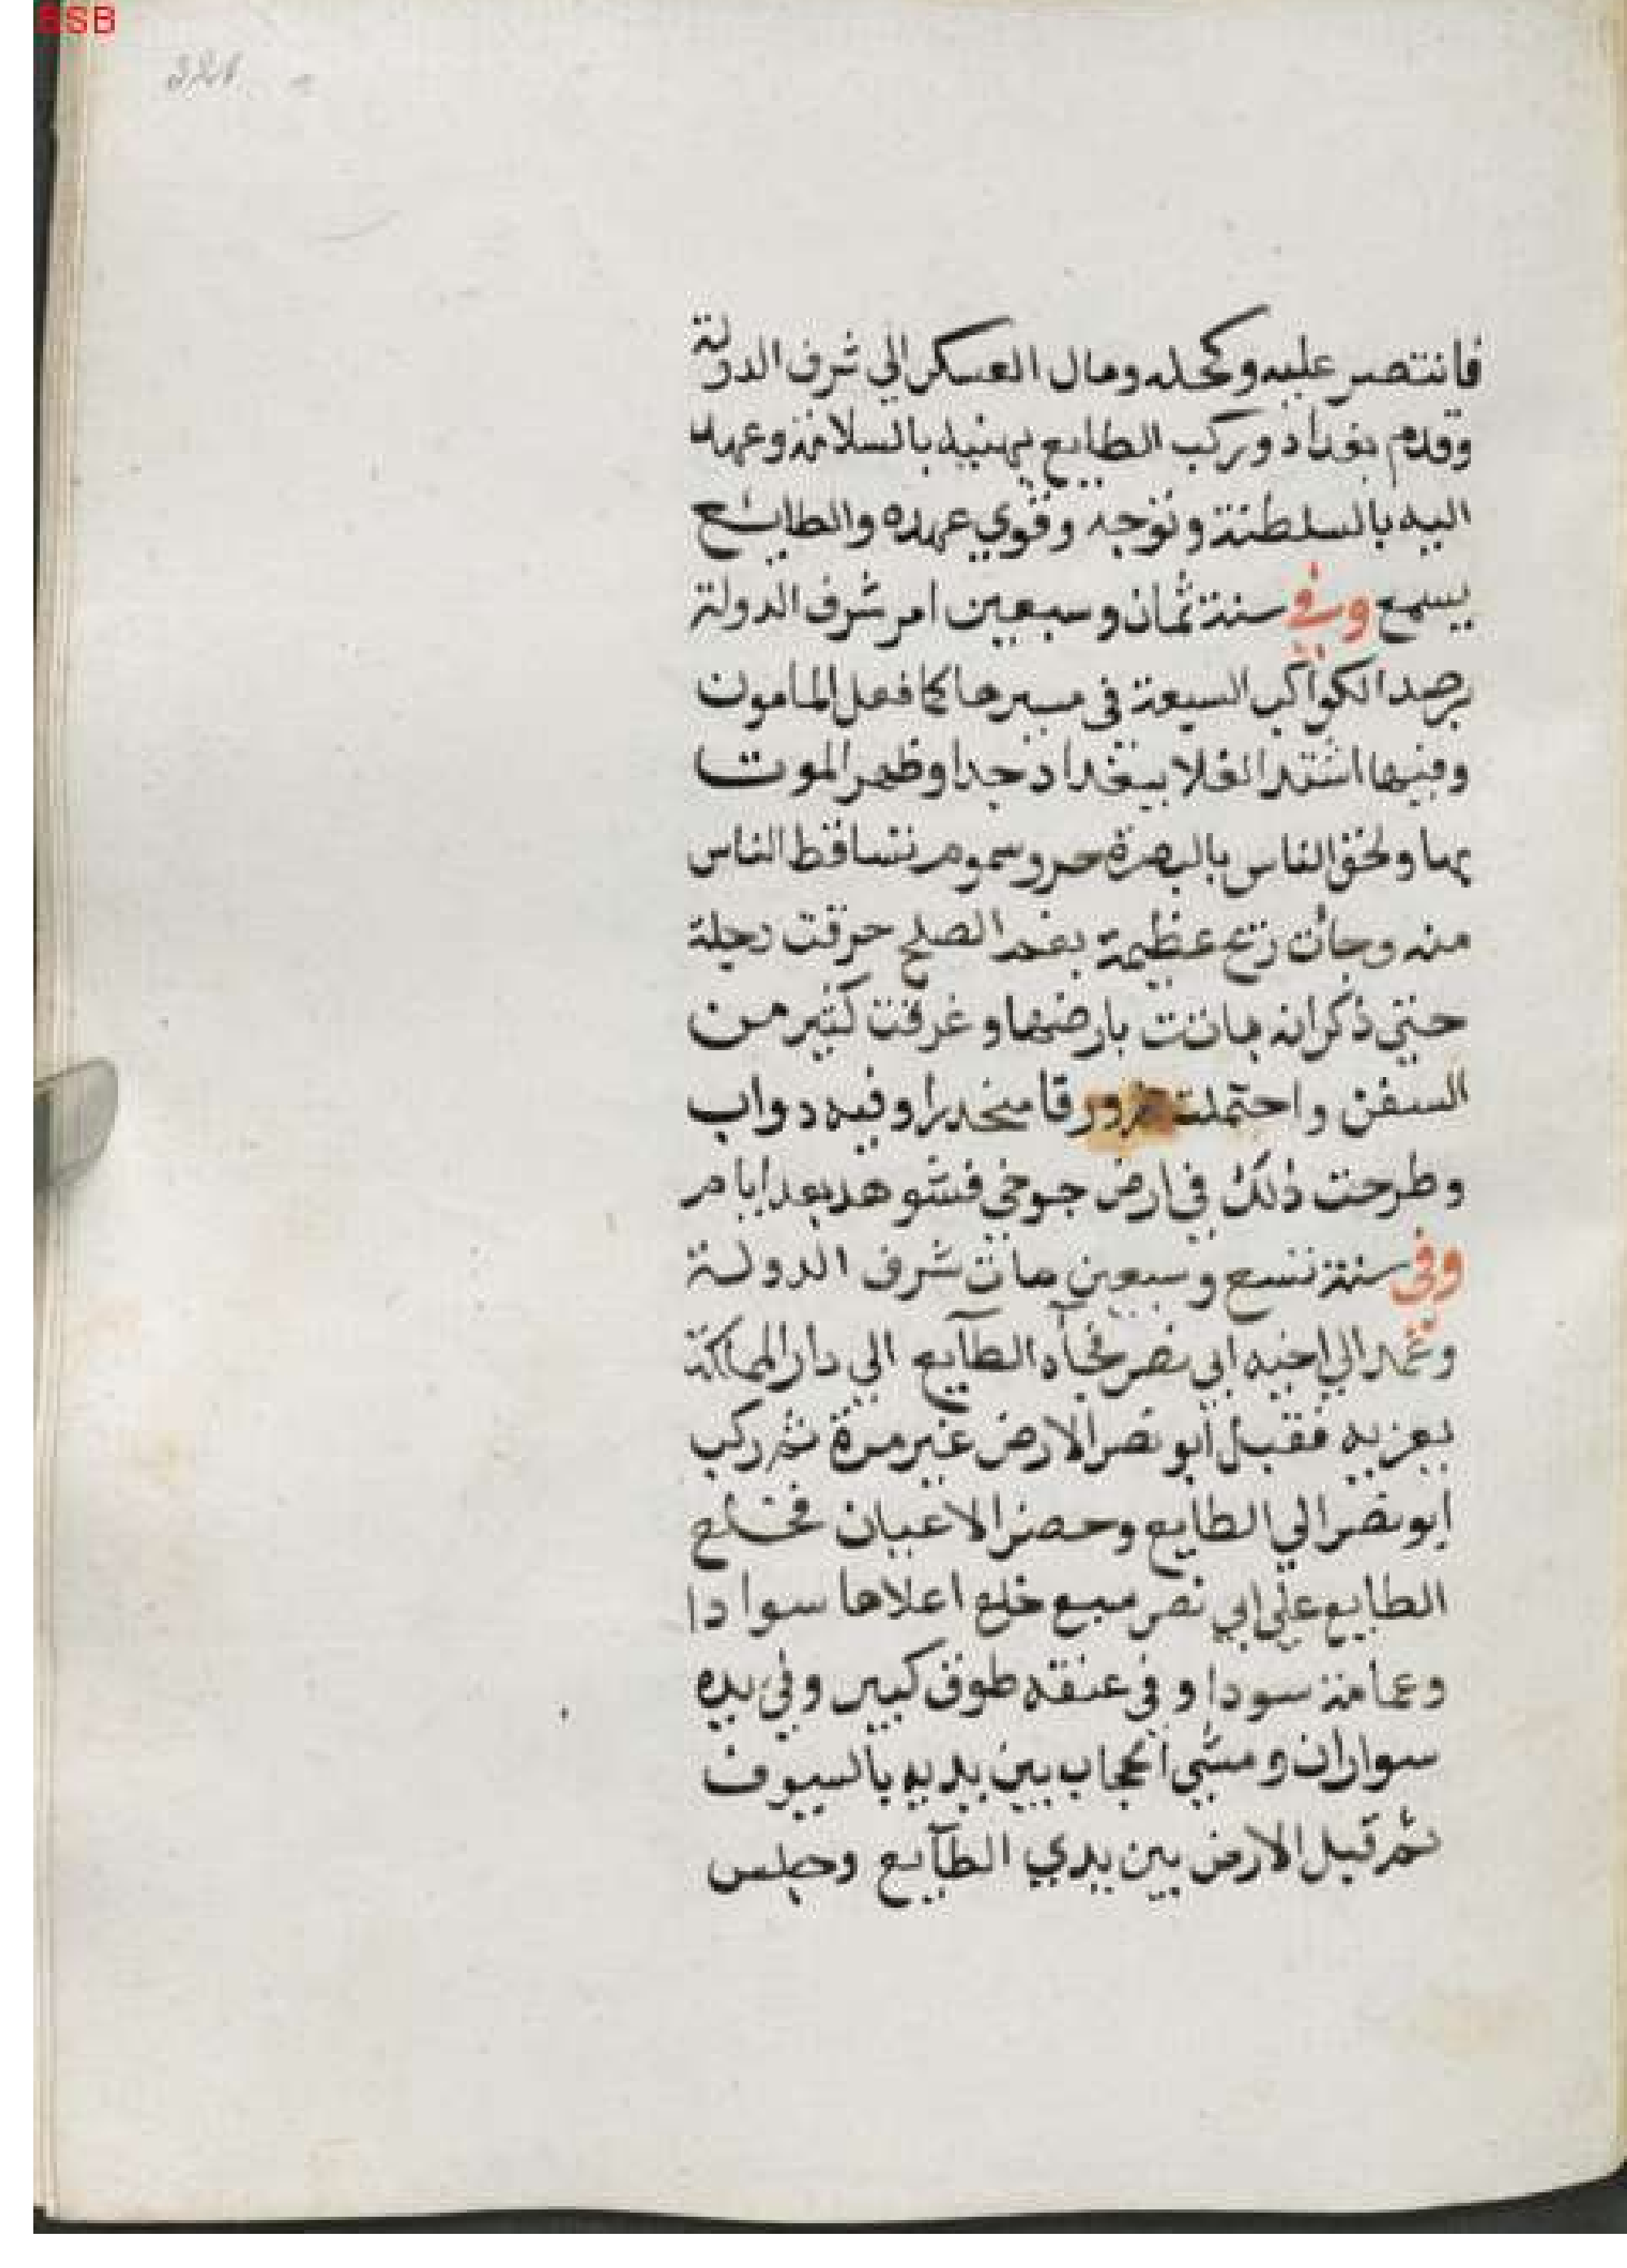 BSB
321
فانتصر عليه وكحله ومال العسكر الي شرف الدولة
وقدم بغداد وركب الطايع يهنيه بالسلامة وعهد
اليه بالسلطنة وتوجه وقوي عهده والطايع
يسمع وفي سنة ثمان وسبعين امر شرف الدولة
برصد الكواكب السبعة في مسيرها كما فعل المامون
وفيها اشتد الغلا ببغداد جدا وظهر الموت
بها ولحق الناس بالبصرة حر وسموم تتساقط الناس
منه وجات ريح عظيمة بفم الصلح حرقت دجلة
حتي ذكر انه بانت بارضها وغرقت كثير من
السفن واحتملت زورقا منحدرا وفيه دواب
وطرحت ذلك في ارض جوخي فشوهد بعد ايام
وفي سنة تسع وسبعين مات شرف الدولة
وعهد الي اخيه ابي نصر فجآه الطايع الي دار المملكة
يعزيه فقبل ابو نصر الارض غير مرة ثم ركب
ابو نصر الي الطايع وحضر الاعيان فخلع
الطايع علي ابي نصر سبع خلع اعلاها سوادا
وعمامة سودا وفي عنقه طوق كبير وفي يده
سواران ومشي الحجاب بين يديه بالسيوف
ثم قبل الارض بين يدي الطآيع وجلس